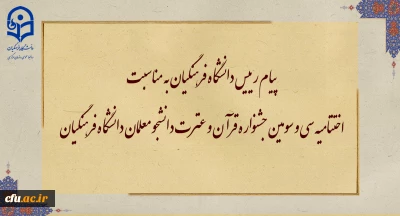 دانشگاه فرهنگیان
پیام رییس دانشگاه فرهنگیان به مناسبت
اختتامیه سی و سومین جشنواره قرآن و عترت دانشجو معلمان دانشگاه فرهنگیان
cfu.ac.ir